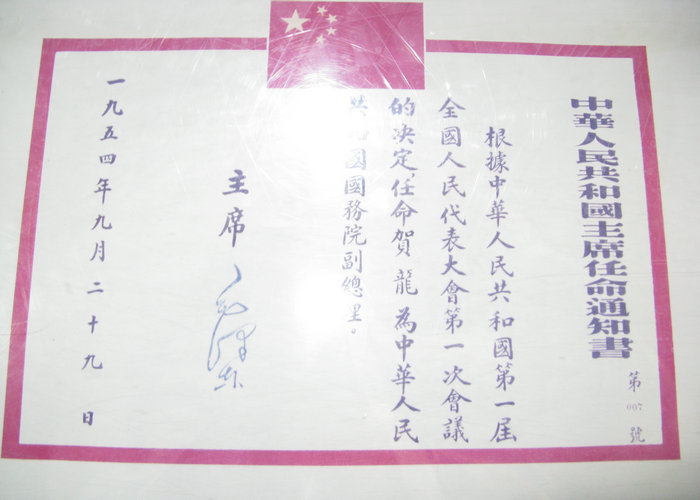 中華人民共和國主席任命通知書
第007號
根據中華人民共和國第一屆
全國人民代表大會第一次會議
的决定,任命賀龍為中華人民
共和國國務院副總里。
主席
毛澤東
一九五四年九月二十九日